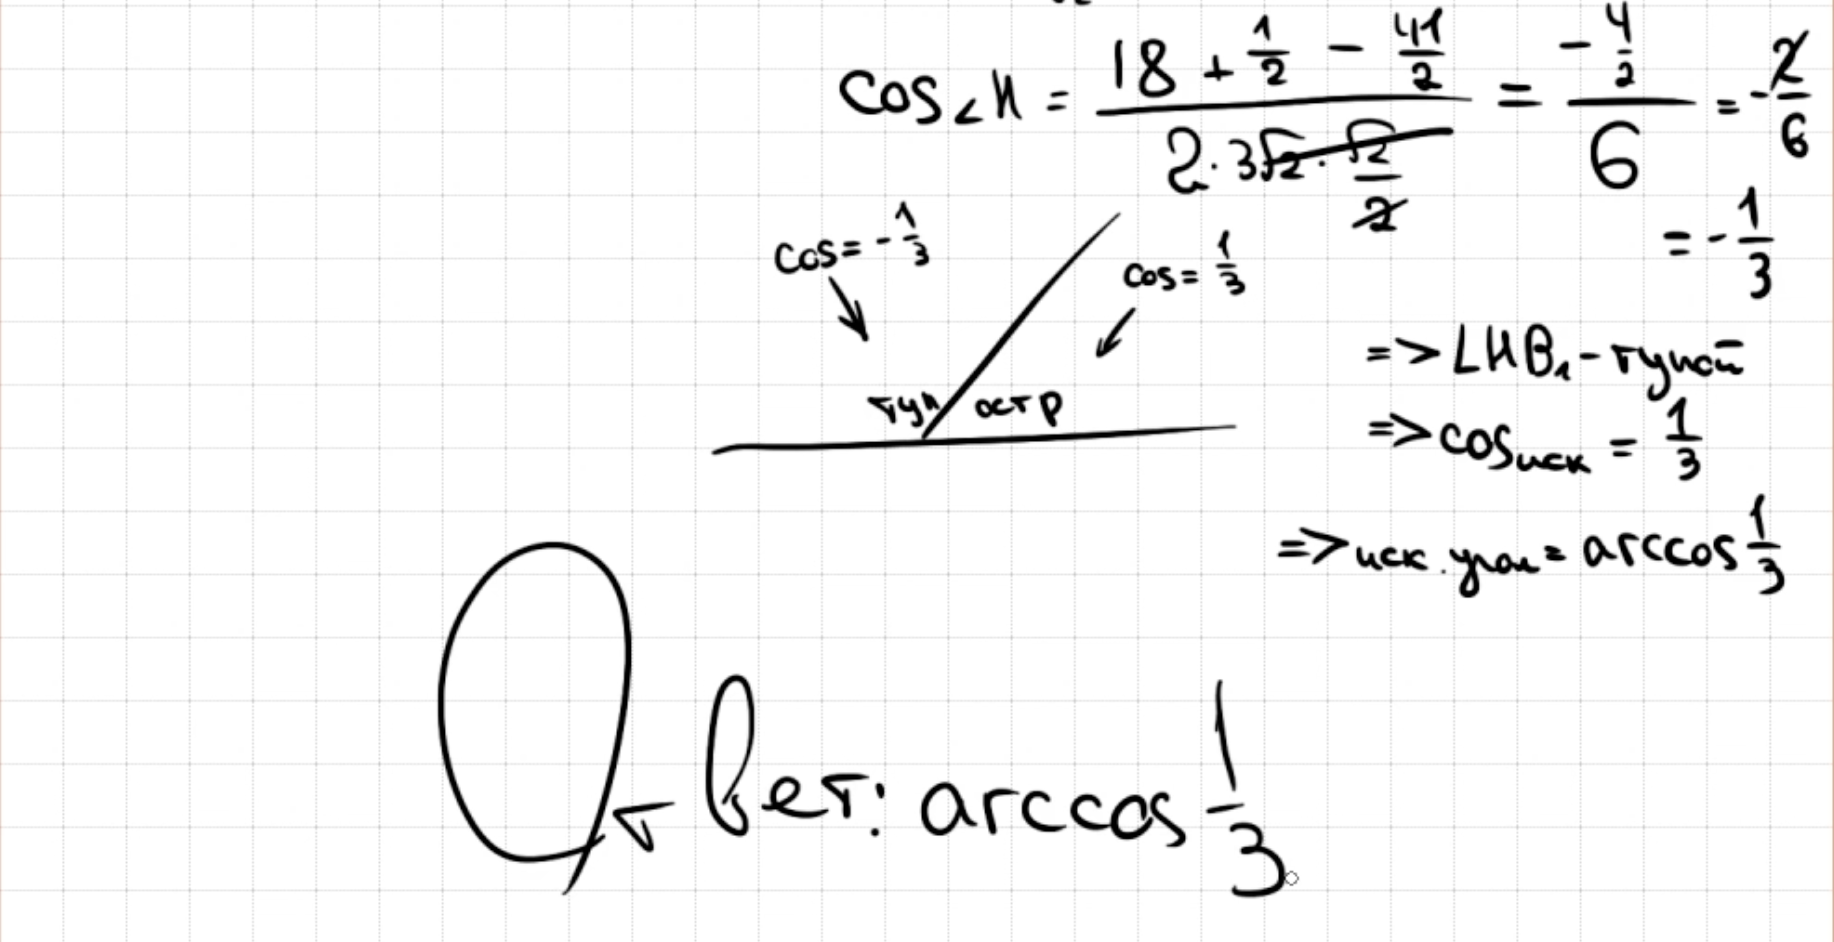 cos∠H = (18 + 1/2 − 41/2) / (2·3√2·√2/2) = (−4/2) / 6 = −2/6
= −1/3
cos = −1/3
cos = 1/3
туп остр
=> LHB₁ - тупой
=> cos иск = 1/3
=> иск. угол = arccos 1/3
Ответ: arccos 1/3